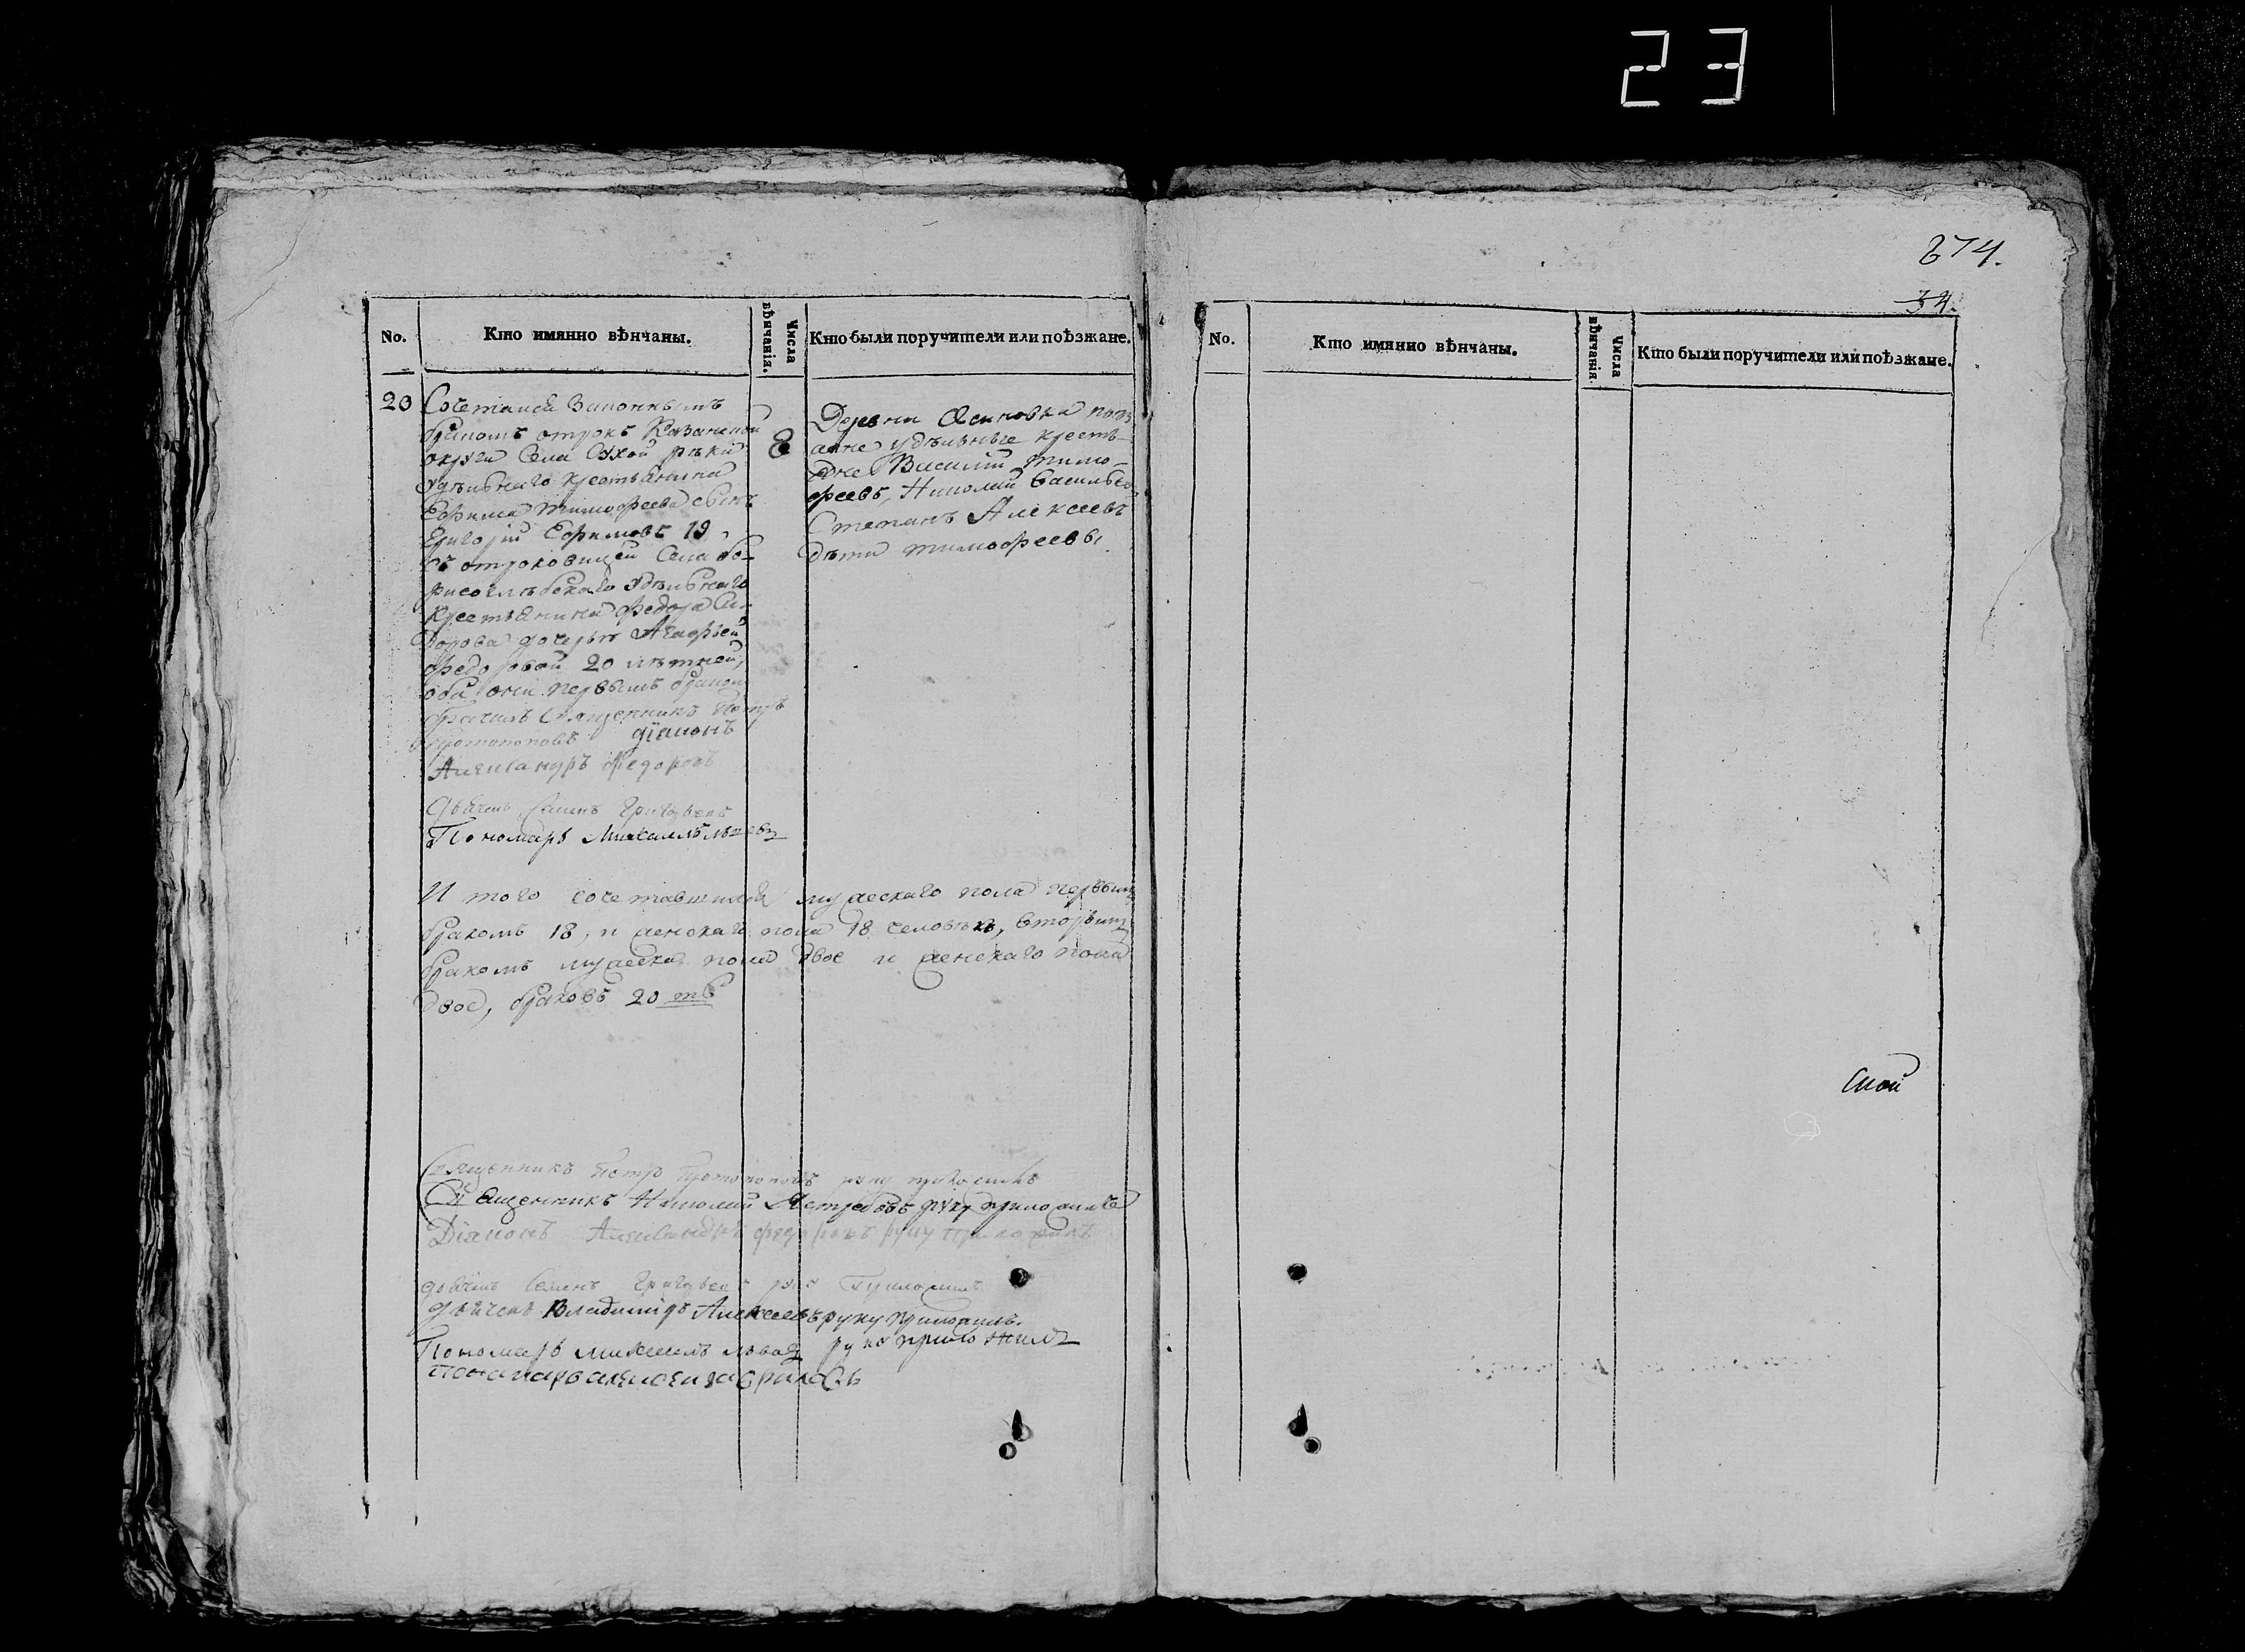 23
274.
34.
No.
Кто имянно вѣнчаны.
Числа вѣнчанія.
Кто были поручители или поѣзжане.
20
Сочетался Законнымъ
бракомъ отрокъ Казанской
округи Села Сухой рѣки
удѣльнаго крестьянина
Ефима Тимофеева сынъ
Григорій Ефимовъ 19
съ отроковицей Села бо-
рисоглѣбскаго удѣльнаго
крестьянина Федора Си-
дорова дочерью Агафьей
Федоровой 20 лѣтней,
оба они первымъ бракомъ
брачилъ Священникъ Петръ
Протопоповъ діаконъ
Александръ Федоровъ
дьячекъ Семенъ Григорьевъ
Пономарь Михаилъ Львовъ
8
Деревни Осиновки поѣз
жане удѣльные кресть-
яне Василій Тимо-
феевъ, Николай Васильевъ
Степанъ Алексеевъ
дѣти Тимофеевы.
И того сочетавшихся мужескаго пола первымъ
бракомъ 18, и женскаго пола 18 человѣкъ, вторымъ
бракомъ мужеска пола двое и женскаго пола
двое, браковъ 20 ть
Священникъ Петръ Протопоповъ руку приложилъ
Священникъ Николай Ястребовъ руку приложилъ
Діаконъ Александръ Федоровъ руку приложилъ
дьячекъ Семенъ Григорьевъ руку приложилъ
дьячекъ Владимиръ Алексеевъ руку приложилъ.
Пономарь Михаилъ Львовъ руку приложилъ
Понамарь алексеи гавриловъ
No.
Кто имянно вѣнчаны.
Числа вѣнчанія.
Кто были поручители или поѣзжане.
ской